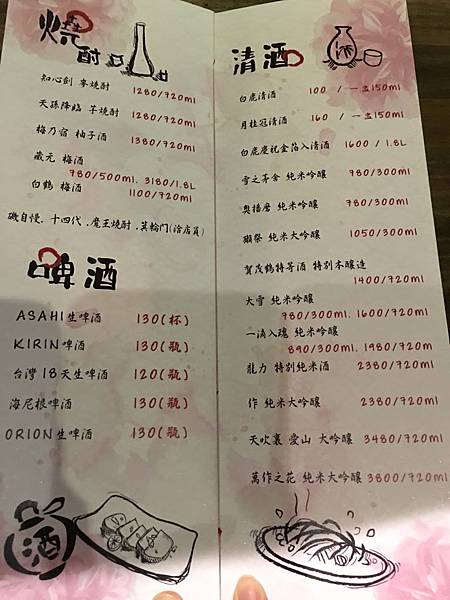 燒酎
知心劍 麥燒酎 1280/720ml
天孫降臨 芋燒酎 1280/720ml
梅乃宿 柚子酒 1380/720ml
藏元 梅酒
780/500ml. 3180/1.8L
白鶴 梅酒 1100/720ml
磯自慢. 十四代. 魔王燒酎. 箕輪門(洽店員)
啤酒
ASAHI生啤酒 130(杯)
KIRIN啤酒 130(瓶)
台灣18天生啤酒 120(瓶)
海尼根啤酒 130(瓶)
ORION生啤酒 130(瓶)
酒
清酒
白鹿清酒 100 / 一壺150ml
月桂冠清酒 160 / 一壺150ml
白鹿慶祝金箔入清酒 1600 / 1.8L
雪之茅舍 純米吟釀 780/300ml
奥播磨 純米吟釀 780/300ml
獺祭 純米大吟釀 1050/300ml
賀茂鶴特等酒 特別本釀造
1400/720ml
大雪 純米吟釀
780/300ml. 1600/720ml
一滴入魂 純米吟釀
890/300ml. 1980/720m
龍力 特別純米酒 2380/720ml
作 純米大吟釀 2380/720ml
天吹裏 愛山 大吟釀 3480/720ml
萬作之花 純米大吟釀 3800/720ml